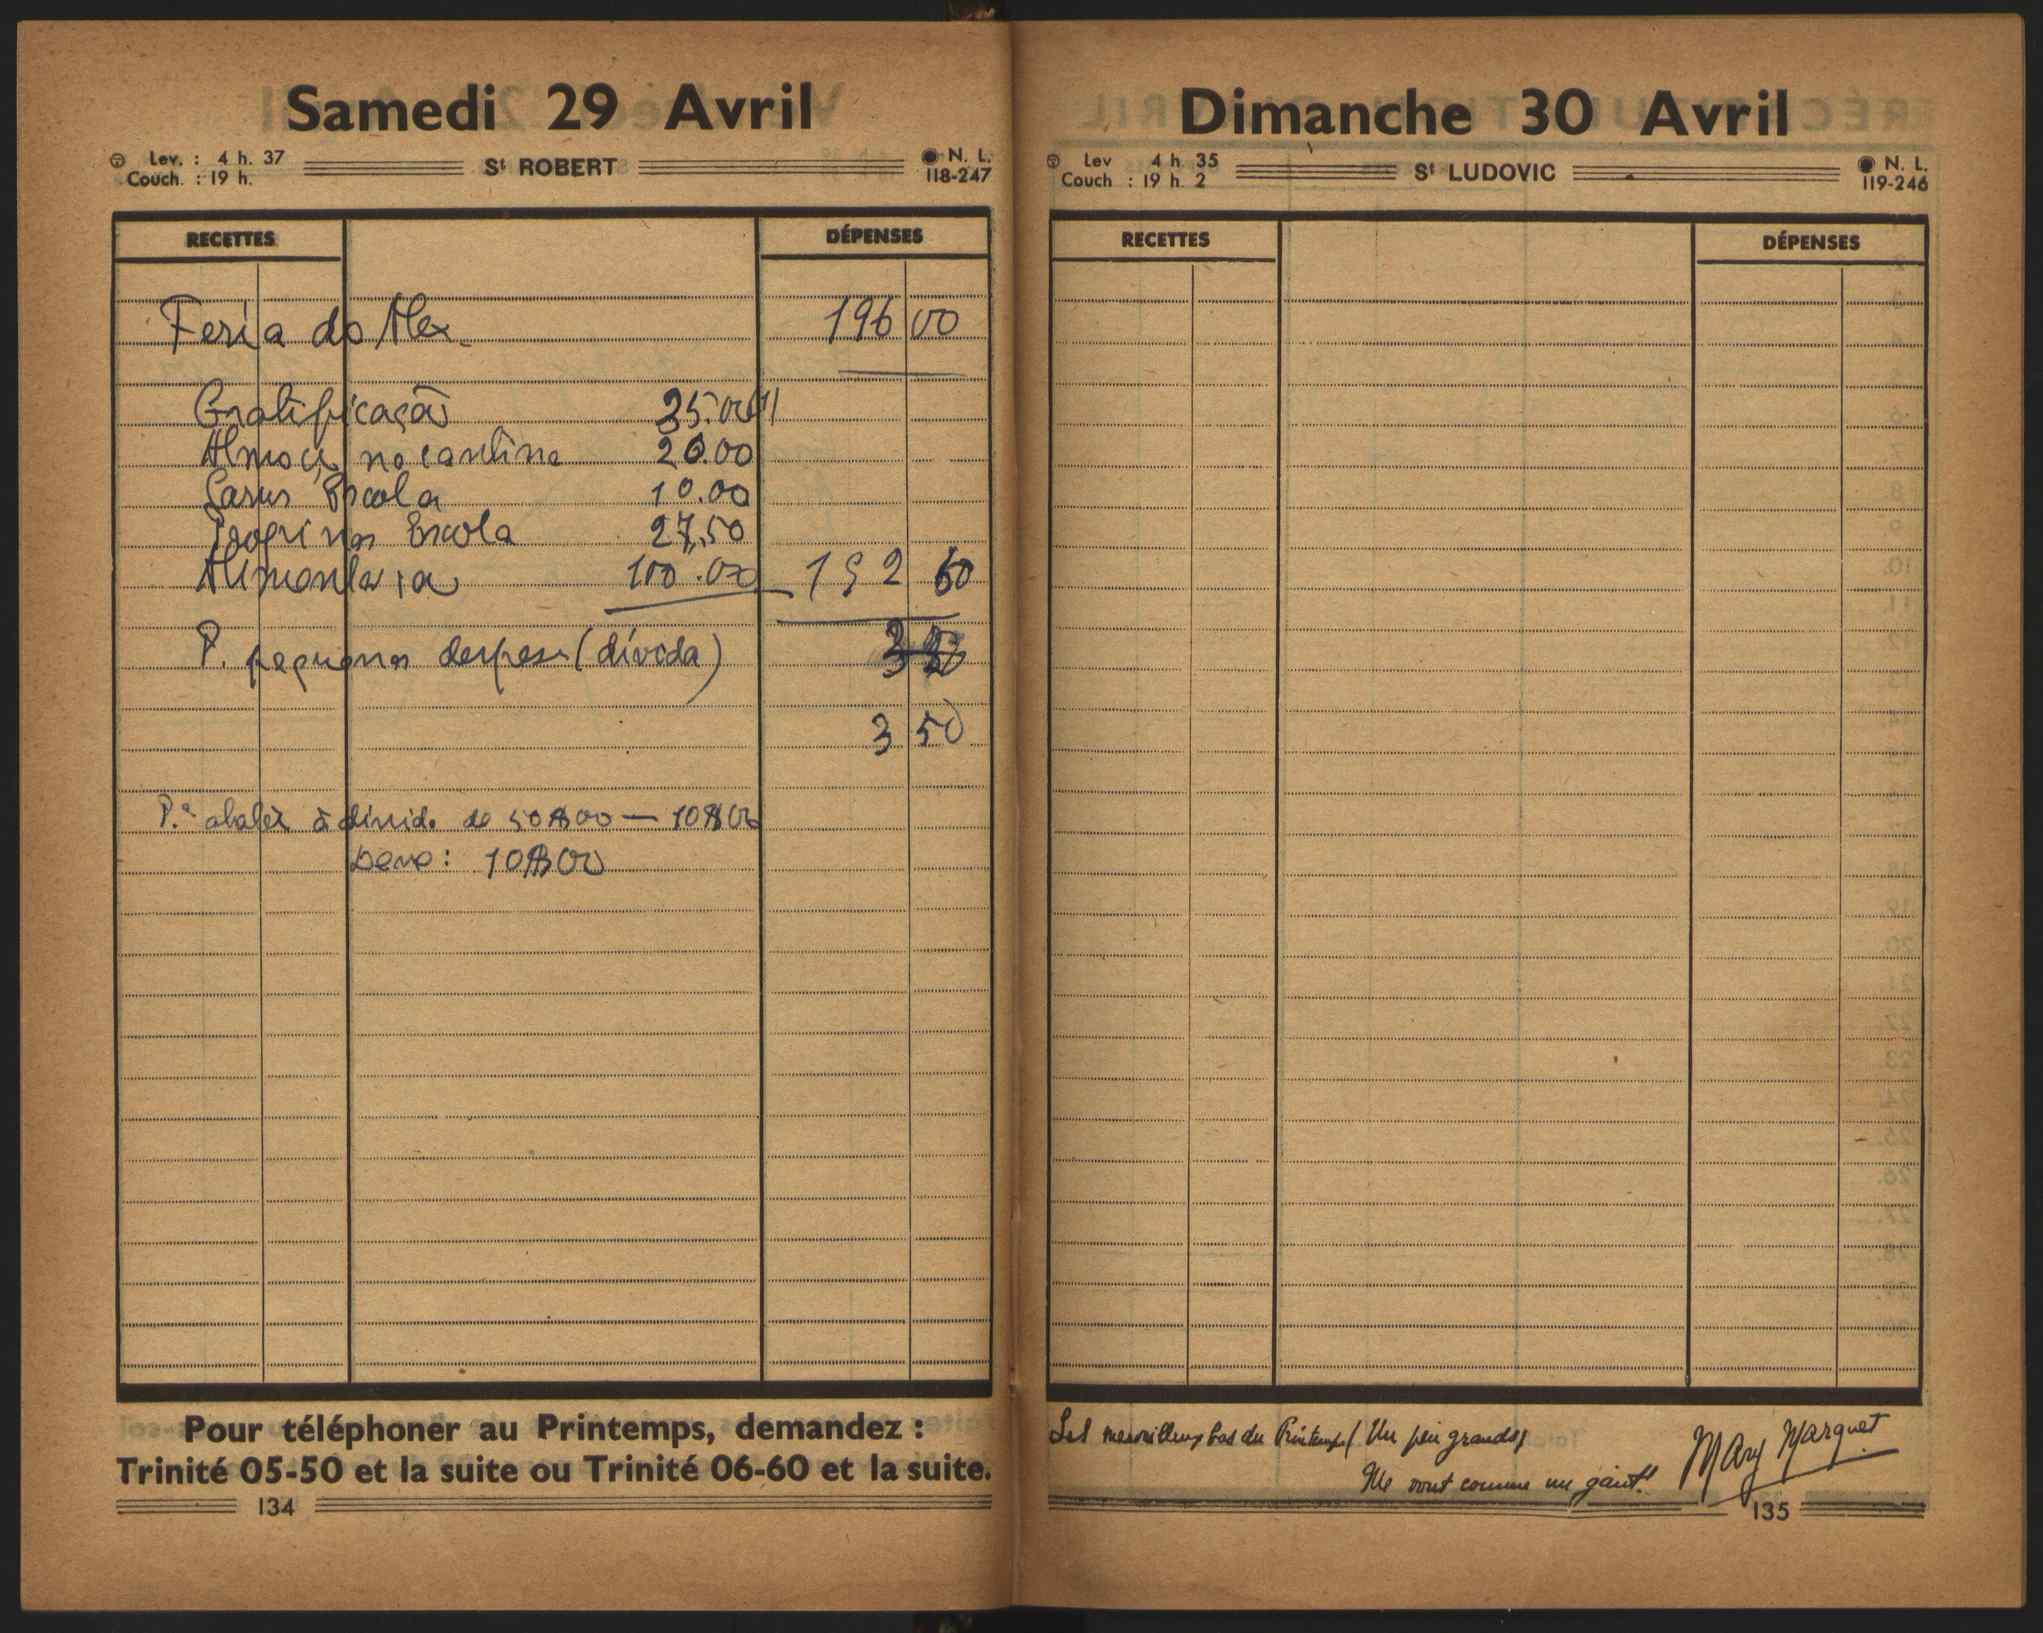 Samedi 29 Avril
Lev. : 4 h. 37
Couch. : 19 h.
St ROBERT
N. L.
118-247
RECETTES
DÉPENSES
Feria do Alex 196 00
Gratificação 35.00
Almoço na cantina 20.00
Escola 10.00
Propinas Escola 27,50
Alimentaria 100.00 192 50
P. pequenas despesas (dívida)
3 50
P.ª abater à divida de 50$00 — 10$00
Deve: 10$00
Pour téléphoner au Printemps, demandez :
Trinité 05-50 et la suite ou Trinité 06-60 et la suite.
134
Dimanche 30 Avril
Lev 4 h. 35
Couch : 19 h. 2
St LUDOVIC
N. L.
119-246
RECETTES
DÉPENSES
Les merveilleux bas du Printemps! Un peu grands,
Ils vont comme un gant!
Mary Marquet
135